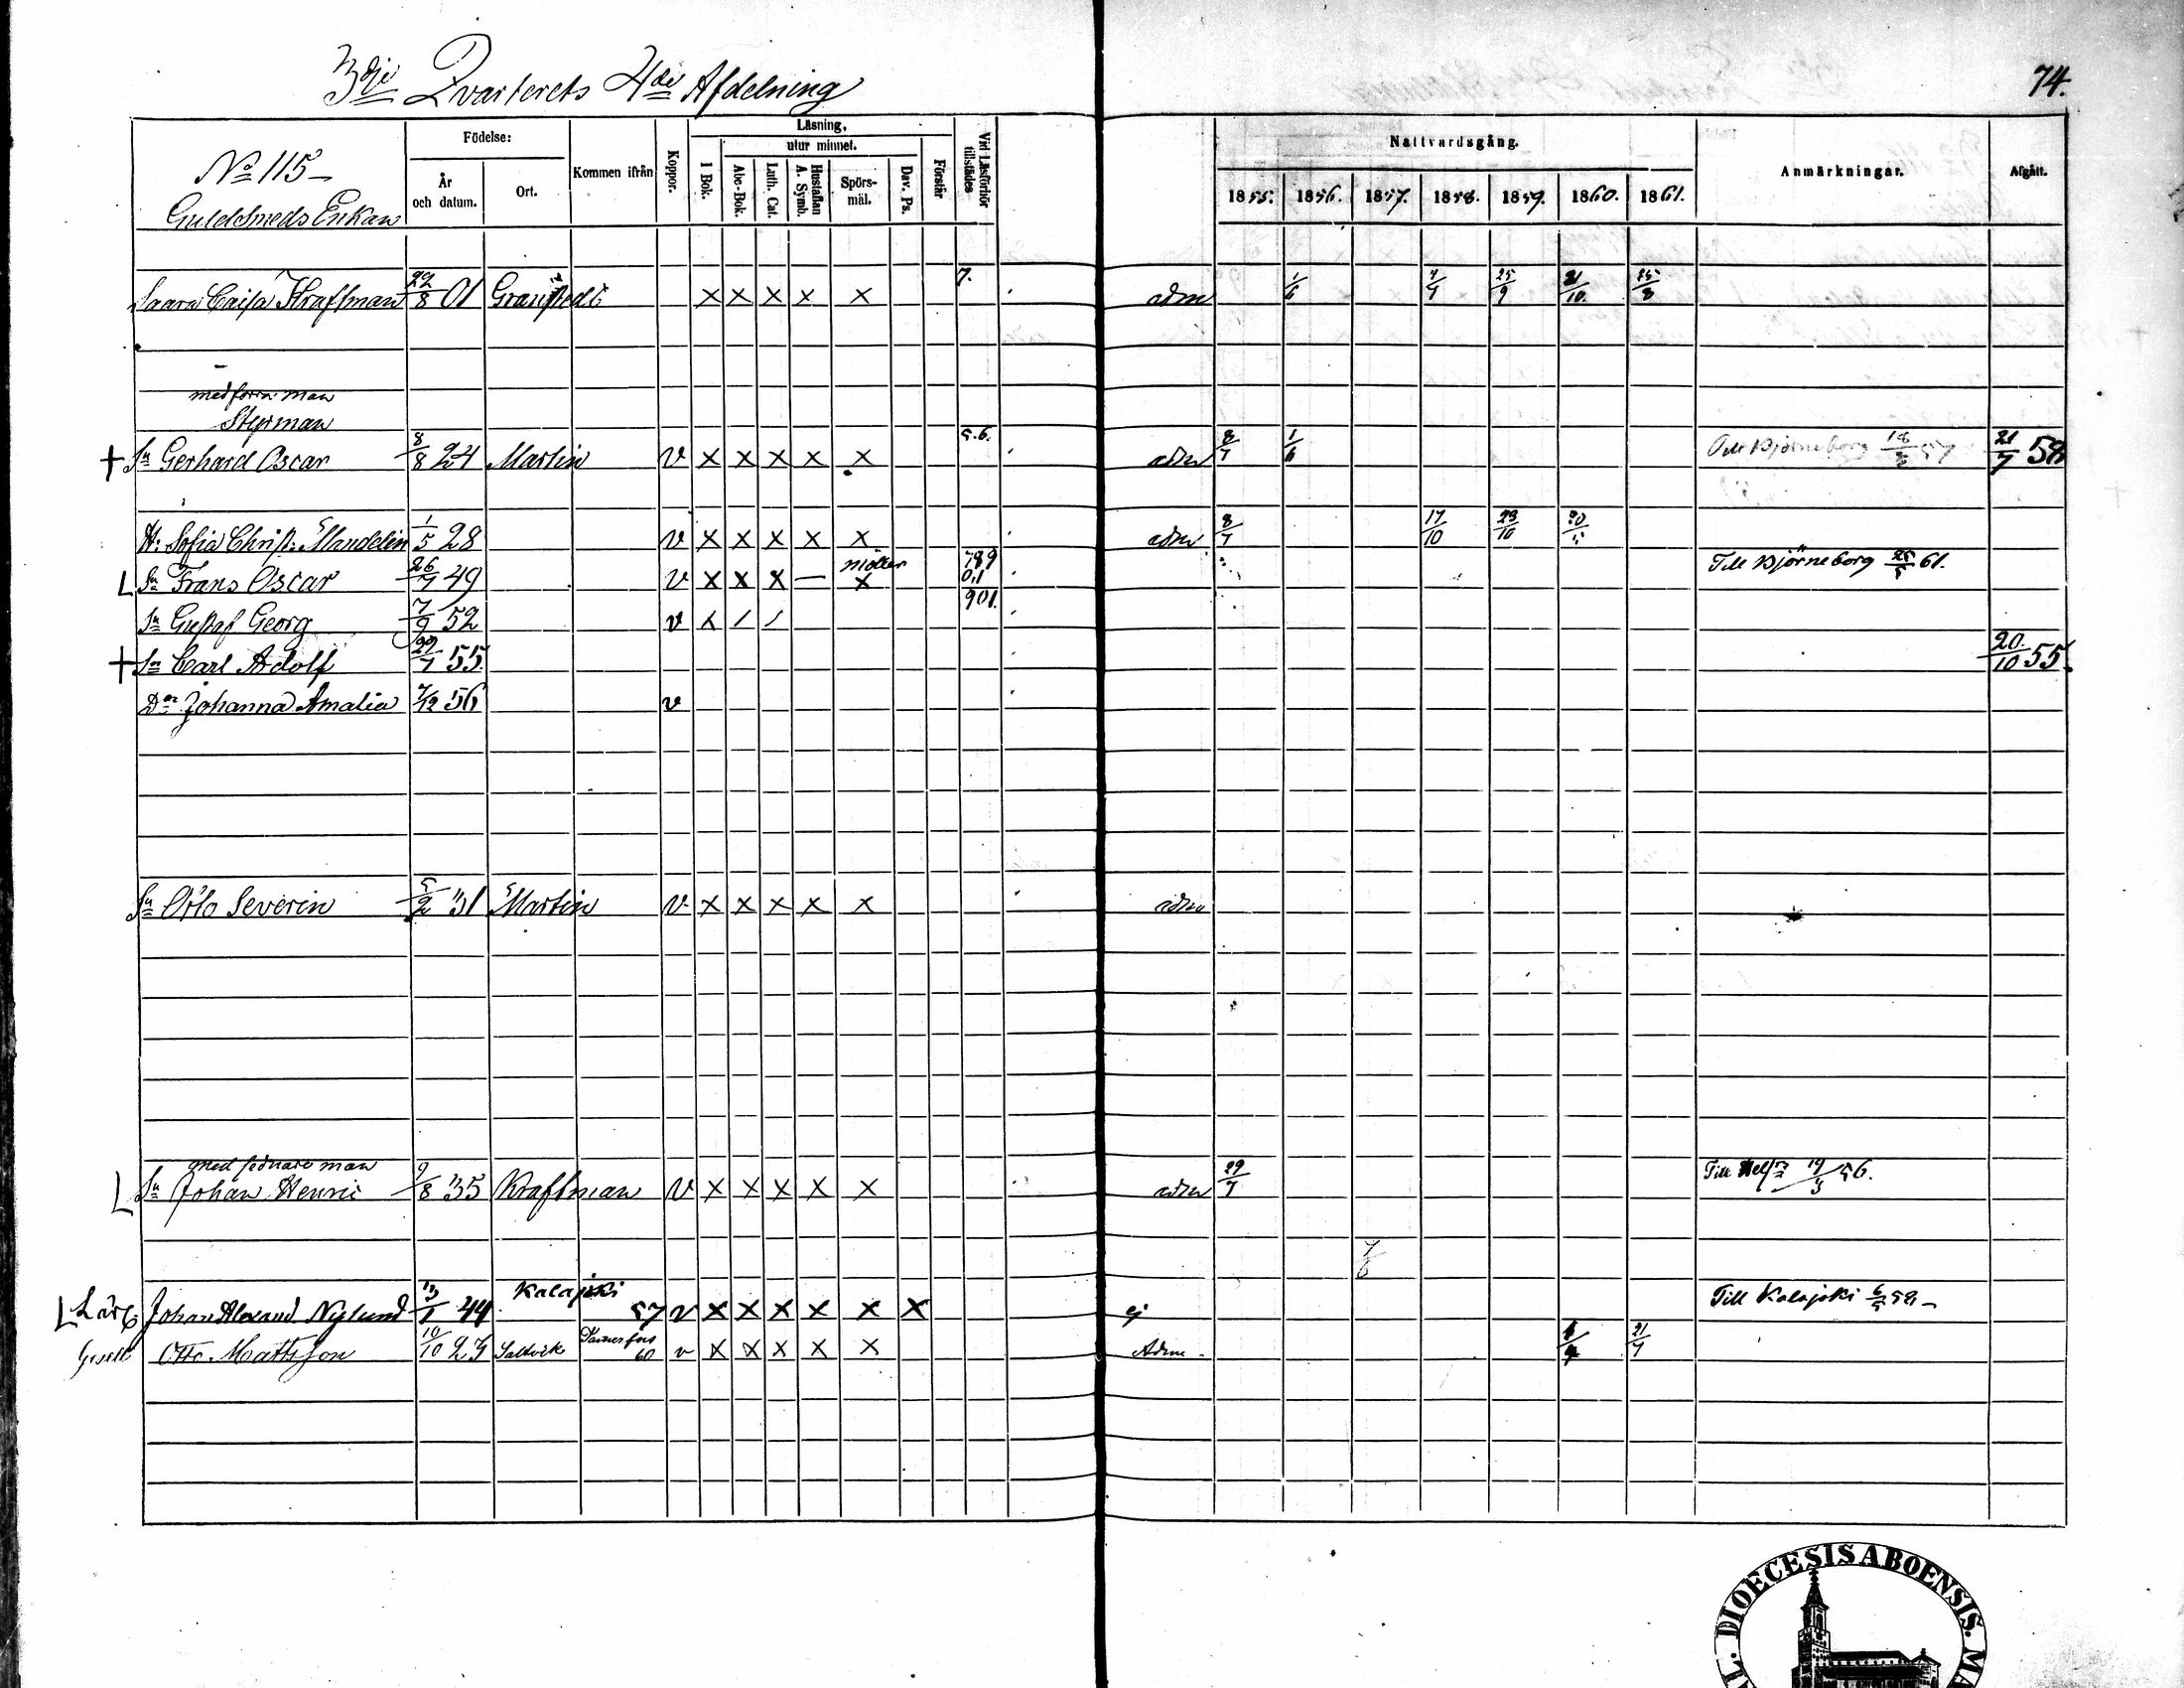 3dje Qvarterets 4de Afdelning
74.
No 115
Guldsmeds Enkan
Födelse:
År och datum.
Ort.
Kommen ifrån
Koppor.
Läsning.
utur minnet.
I Bok.
Abc-Bok.
Luth. Cat.
Hustaflan A. Symb.
Spörs-mål.
Dav. Ps.
Förstår
Vid Läsförhör tillstädes
Nattvardsgång.
1855. 1856. 1857. 1858. 1859. 1860. 1861.
Anmärkningar.
Afgått.
Saara Caisa Kraftman 22/8 01 × × × × × 7. adm 1/6 25/9 21/10 25/8
med förra man
Styrman
† Sn Gerhard Oscar 8/8 24 Martin v × × × × × 5.6. adm 8/7 1/6 Till Björneborg 57 21/7 58
H: Sofia Christ: Mandelin 1/5 28 v × × × × × adm 8/7 17/10 23/10
L Sn Frans Oscar 26/7 49 v × × × — × 789 0,1 Till Björneborg 61.
Sn Gustaf Georg 7/9 52 v × / / 901.
† Sn Carl Adolf 29/7 55 20/10 55.
Dr Johanna Amalia 7/12 56 v
Sn Otto Severin 5/2 31 Martin v × × × × × adm
med sednare man
L Sn Johan Henric 9/8 35 Kraftman v × × × × × adm 29/7 Till Helsf 19/3 56.
7/6
L Lärg Johan Alexand Nylund 13/1 44 Kalajoki 57 v × × × × × × ej Till Kalajoki 6/5 58
Gesell Otto Mattsson 10/10 27 Saltvik 60 v × × × × × Adm 21/7
DIOECESIS ABOENSIS.